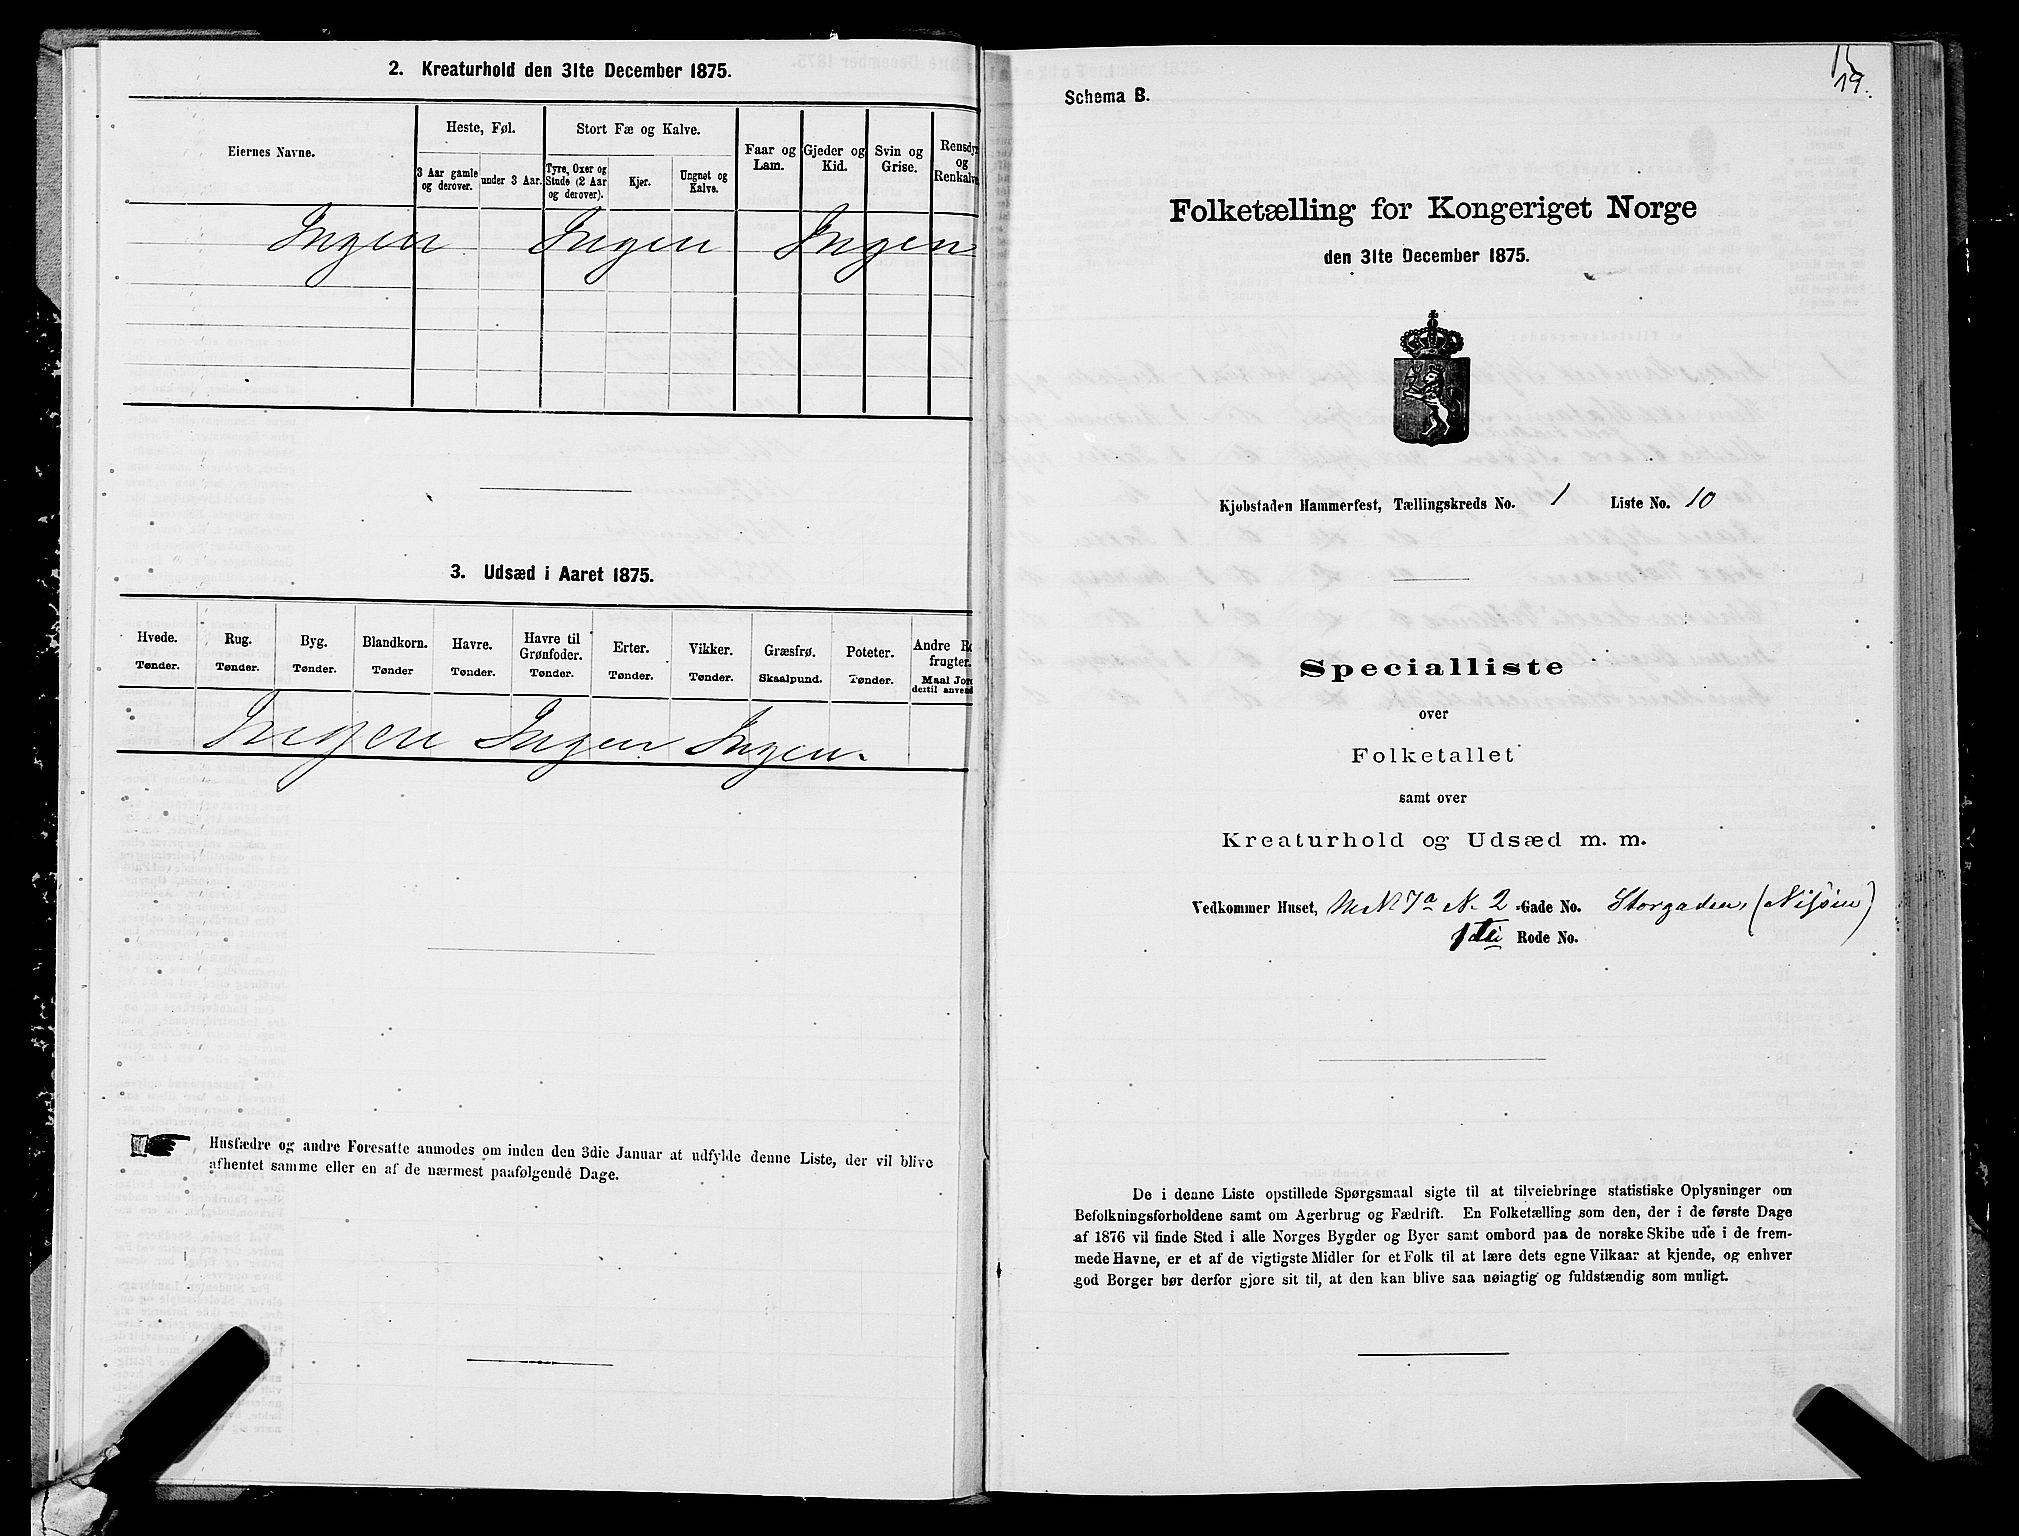 2. Kreaturhold den 31te December 1875.
Eiernes Navne.
Heste, Føl.
3 Aar gamle og derover.
under 3 Aar.
Stort Fæ og Kalve.
Tyre, Oxer og Stude (2 Aar og derover).
Kjør.
Ungnøt og Kalve.
Faar og Lam.
Gjeder og Kid.
Svin og Grise.
Rensdyr og Renkalve
Ingen Ingen Ingen
3. Udsæd i Aaret 1875.
Hvede. Rug. Byg. Blandkorn. Havre. Havre til Grønfoder. Erter. Vikker. Græsfrø. Poteter. Andre
Tønder. Tønder. Tønder. Tønder Tønder. Tønder. Tønder. Tønder. Skaalpund. Tønder.
frugter.
Maal Jord
dertil anvend
Ingen Ingen Ingen.
Husfædre og andre Foresatte anmodes om inden den 3die Januar at udfylde denne Liste, der vil blive
afhentet samme eller en af de nærmest paafølgende Dage.
19.
Schema B.
Folketælling for Kongeriget Norge
den 31te December 1875.
Kjøbstaden Hammerfest, Tællingskreds No. 1 Liste No. 10
Specialliste
over
Folketallet
samt over
Kreaturhold og Udsæd m. m.
Vedkommer Huset, M N 7a N. 2 -Gade No. Storgaden,
1ste Rode No.
De i denne Liste opstillede Spørgsmaal sigte til at tilveiebringe statistiske Oplysninger om
Befolkningsforholdene samt om Agerbrug og Fædrift. En Folketælling som den, der i de første Dage
af 1876 vil finde Sted i alle Norges Bygder og Byer samt ombord paa de norske Skibe ude i de frem-
mede Havne, er et af de vigtigste Midler for et Folk til at lære dets egne Vilkaar at kjende, og enhver
god Borger bør derfor gjøre sit til, at den kan blive saa nøiagtig og fuldstændig som muligt.